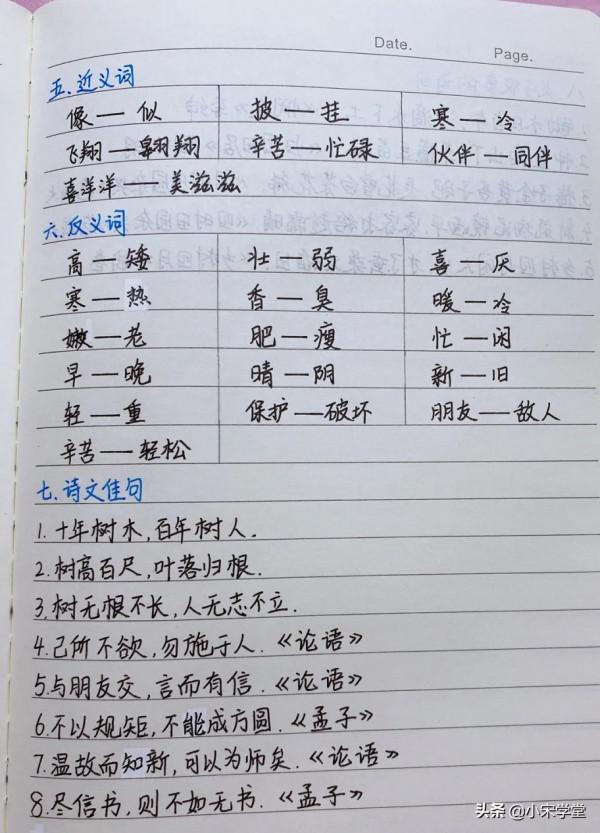 Date.
Page.
五.近义词
像—似 披—挂 寒—冷
飞翔—翱翔 辛苦—忙碌 伙伴—同伴
喜洋洋—美滋滋
六.反义词
高—矮 壮—弱 喜—厌
寒—热 香—臭 暖—冷
嫩—老 肥—瘦 忙—闲
早—晚 晴—阴 新—旧
轻—重 保护—破坏 朋友—敌人
辛苦—轻松
七.诗文佳句
1.十年树木,百年树人.
2.树高百尺,叶落归根.
3.树无根不长,人无志不立.
4.己所不欲,勿施于人.《论语》
5.与朋友交,言而有信.《论语》
6.不以规矩,不能成方圆.《孟子》
7.温故而知新,可以为师矣.《论语》
8.尽信书,则不如无书.《孟子》
头条 @小宋学堂